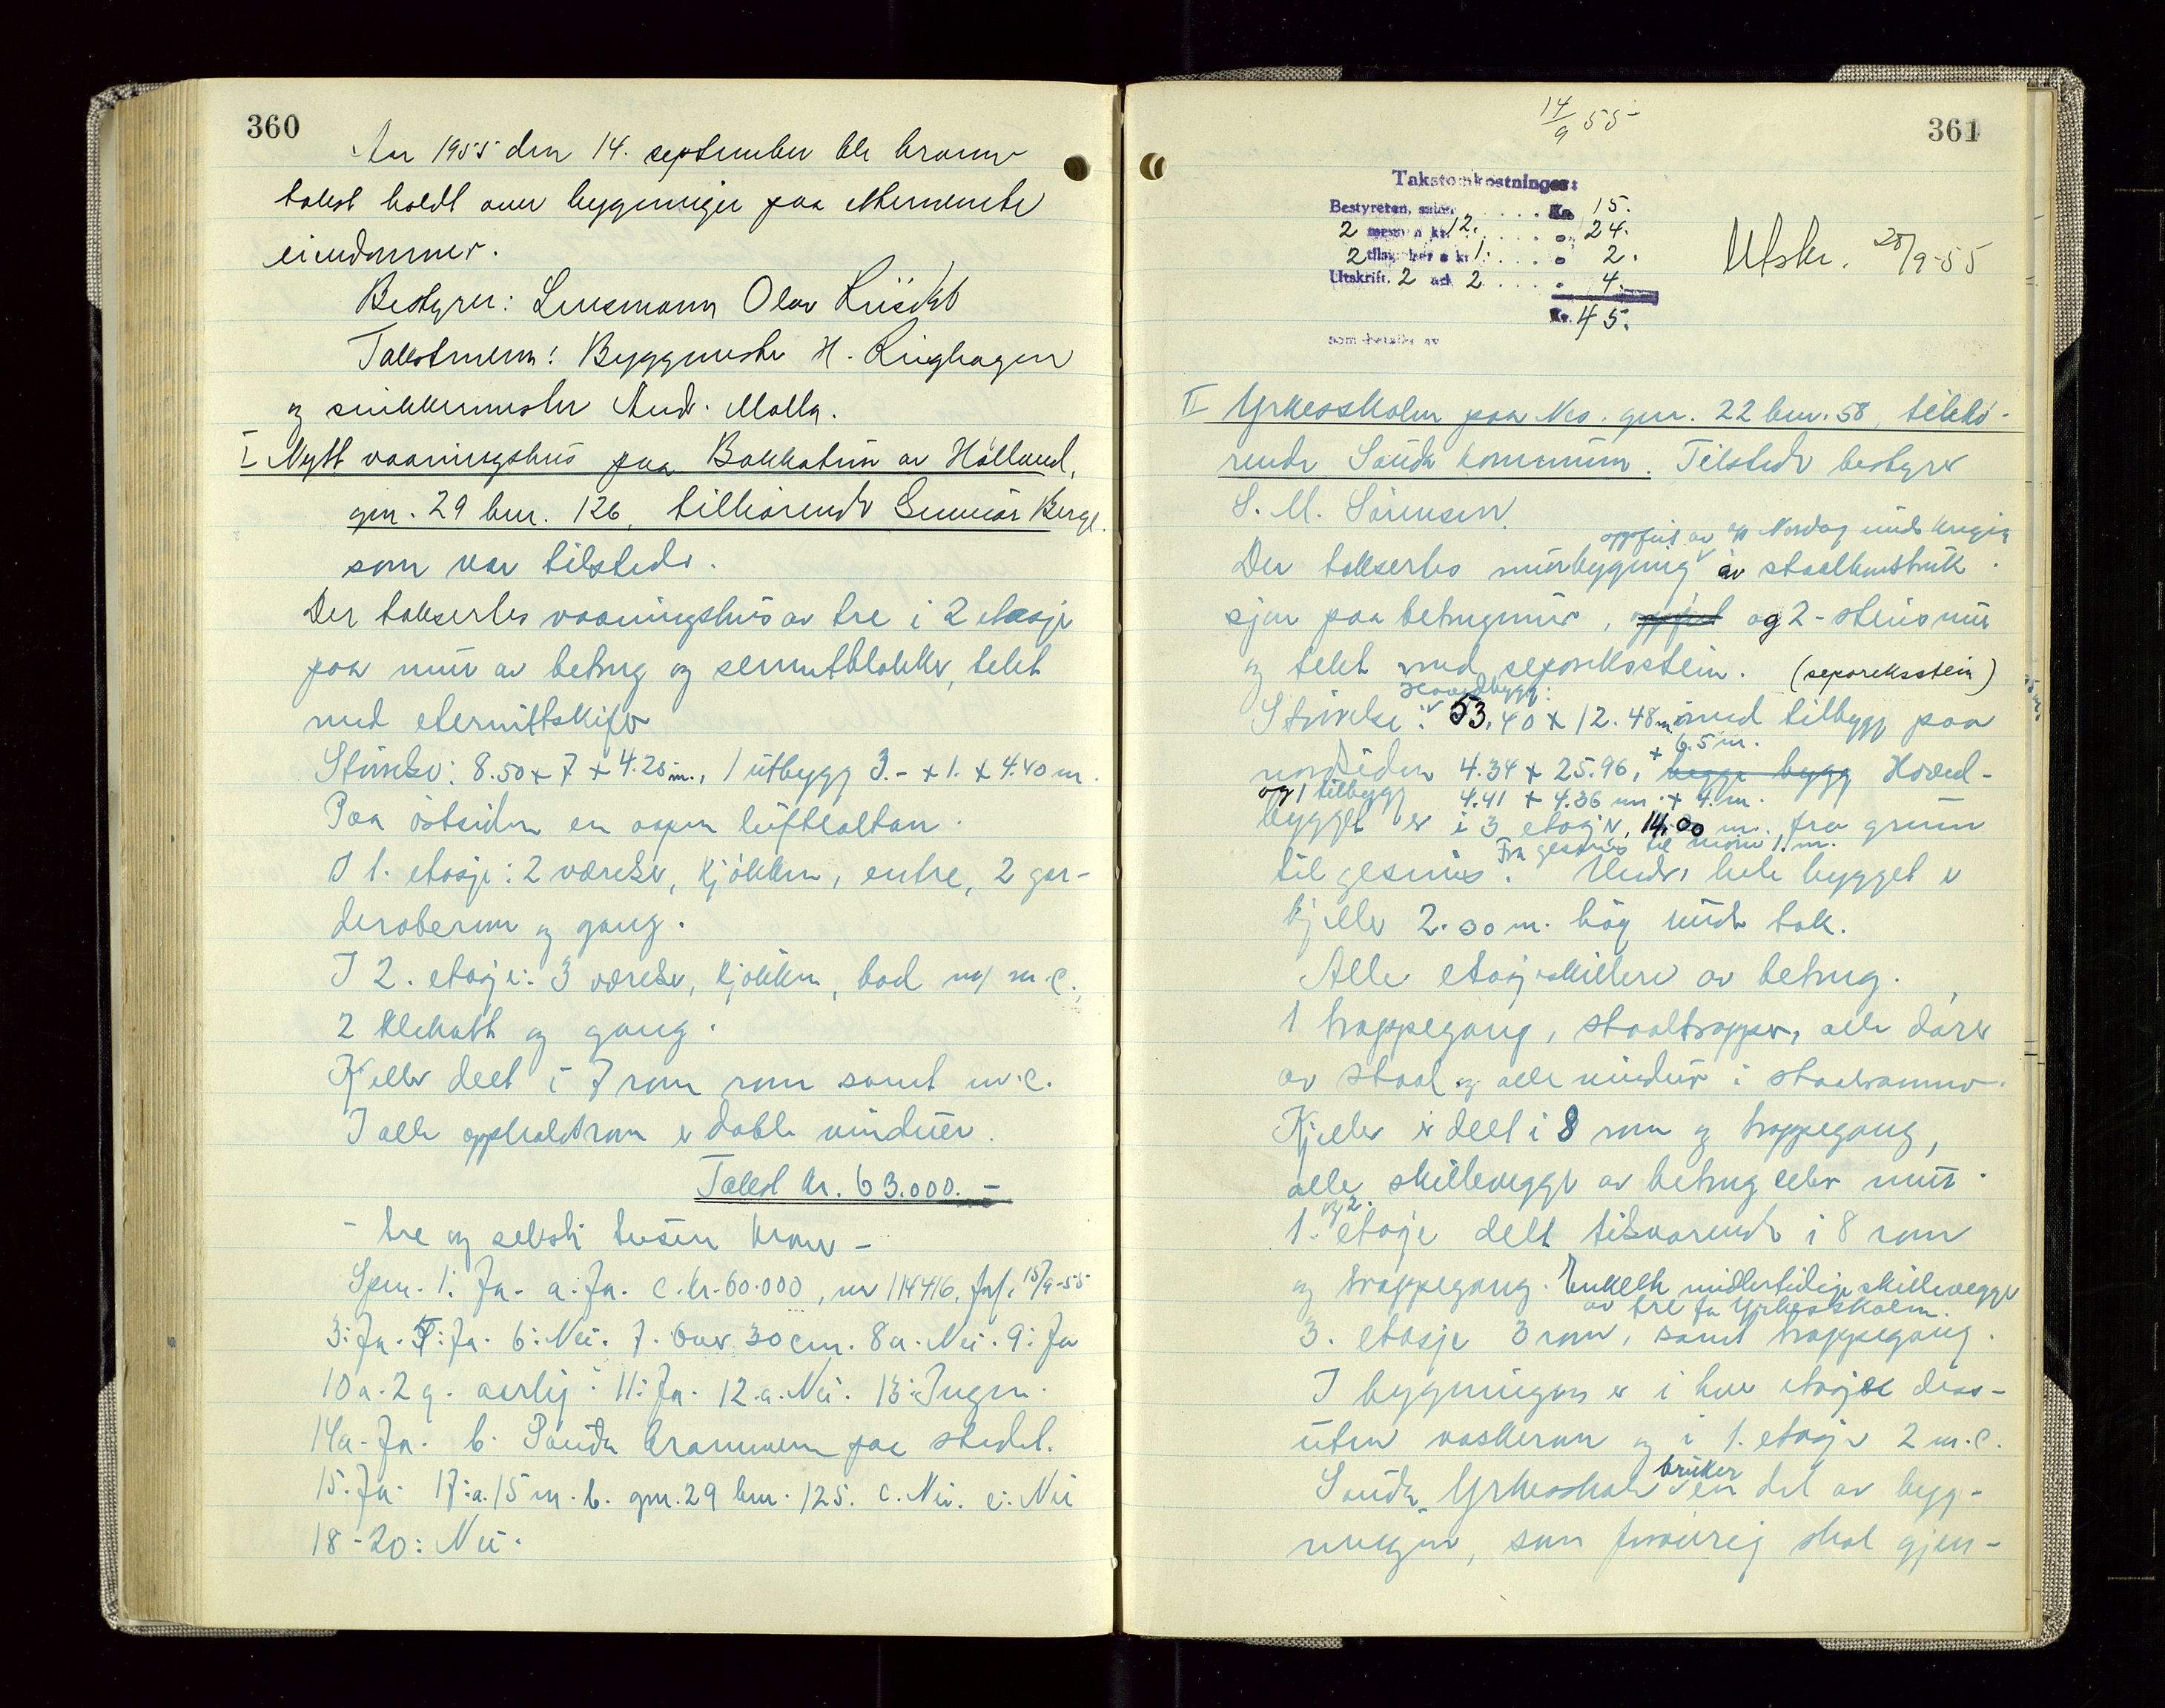 360
Aar 1955 den 14. september ble brann-
takst holdt over bygninger paa ethernevnte
eiendommer.
Bestyrer: Lensmann Olav
Takstmenn: Byggmester H. Ringhagen
og snikkermester And. Molla.
I Nytt vaaningshus paa Bakkatun av Hølland,
gnr. 29 bnr. 126, tilhørende Gunnar Berge.
som var tilstede.
Der takserkes vaaningshus av tre i 2 etasje
paa mur av betong og sementblokker, tekt
med eternittskifer
Størrelse: 8.50 x 7 x 4.28 m., 1 utbygg 3.- x 1. x 4.40 m.
Paa østsiden en aapen luftealtan.
I 1. etasje: 2 værelser, kjøkken, entre, 2 gar-
deroberom og gang.
I 2. etasje: 3 værelser, kjøkken, bad m/ w.c.,
2 klekott og gang.
Kjeller delt i 7 rom rom samt w.c.
I alle oppholdsrom er doble vinduer.
Takst kr. 63.000.-
- tre og seksti tusen kroner -
Spm. 1: Ja. a. Ja. c. kr. 60.000, nr 114416, jnf. 15/9-55
3: Ja. 5: Ja. 6: Nei. 7. Over 30 cm. 8a. Nei. 9: Ja
10a. 2 g. aarlig. 11: Ja. 12.a. Nei. 13: Ingen.
14a. Ja. b. Sauda brannvern paa stedet.
15. Ja. 17: a. 15 m. b. gnr. 29 bnr. 125. c. Nei. e. Nei
18-20: Nei.
361
14/9 55
Takstomkostninger:
Bestyreren, salær . . . . . Kr. 15.
2 menn a kr. 12. . . . . „ 24.
2 tilsynelser a kr. 1. . . . „ 2.
Utskrift. 2 ark 2 . . . . . „ 4.
Kr. 45.
som betales av
Utskr. 28/9-55
II Yrkesskolen paa Nes. gnr. 22 bnr. 58, tilhø-
rende Sauda kommune. Tilstede bestyrer
S. M. Sørensen.
oppført av Nordag under krigen
Der takserkes murbygning av staalkonstruk-
sjon paa betongmur, oppført og 2-steins mur
og tekt med seporeksstein. (seporeksstein)
Hovedbygg:
Størrelse: 53.40 x 12.48 m med tilbygg paa
x 6.5 m.
nordsiden 4.34 x 25.96, begge bygg Hoved-
og 1 tilbygg 4.41 x 4.36 m. x 4. m.
bygget er i 3 etasjer, 14.00 m. fra grunn
Fra gesims til møne 1. m.
til gesims. Under hele bygget er
kjeller 2.00 m. høg under tak.
Alle etasjeskillere av betong.
1 trappegang, staaltrapper, alle dører
av staal og alle vinduer i staalrammer.
Kjeller er delt i 8 rom og trappegang,
alle skillevegger av betong eller mur.
og 2.
1. etasje delt tilsvarende i 8 rom
og trappegang. Enkelte midlertidige skillevegger
av tre for Yrkesskolen.
3. etasje 3 rom, samt trappegang.
I bygningen er i hver etasje dess-
uten vaskerom og i 1. etasje 2 w.c.
bruker
Sauda Yrkesskole en del av byg-
ningen, som forøvrig skal gjen-